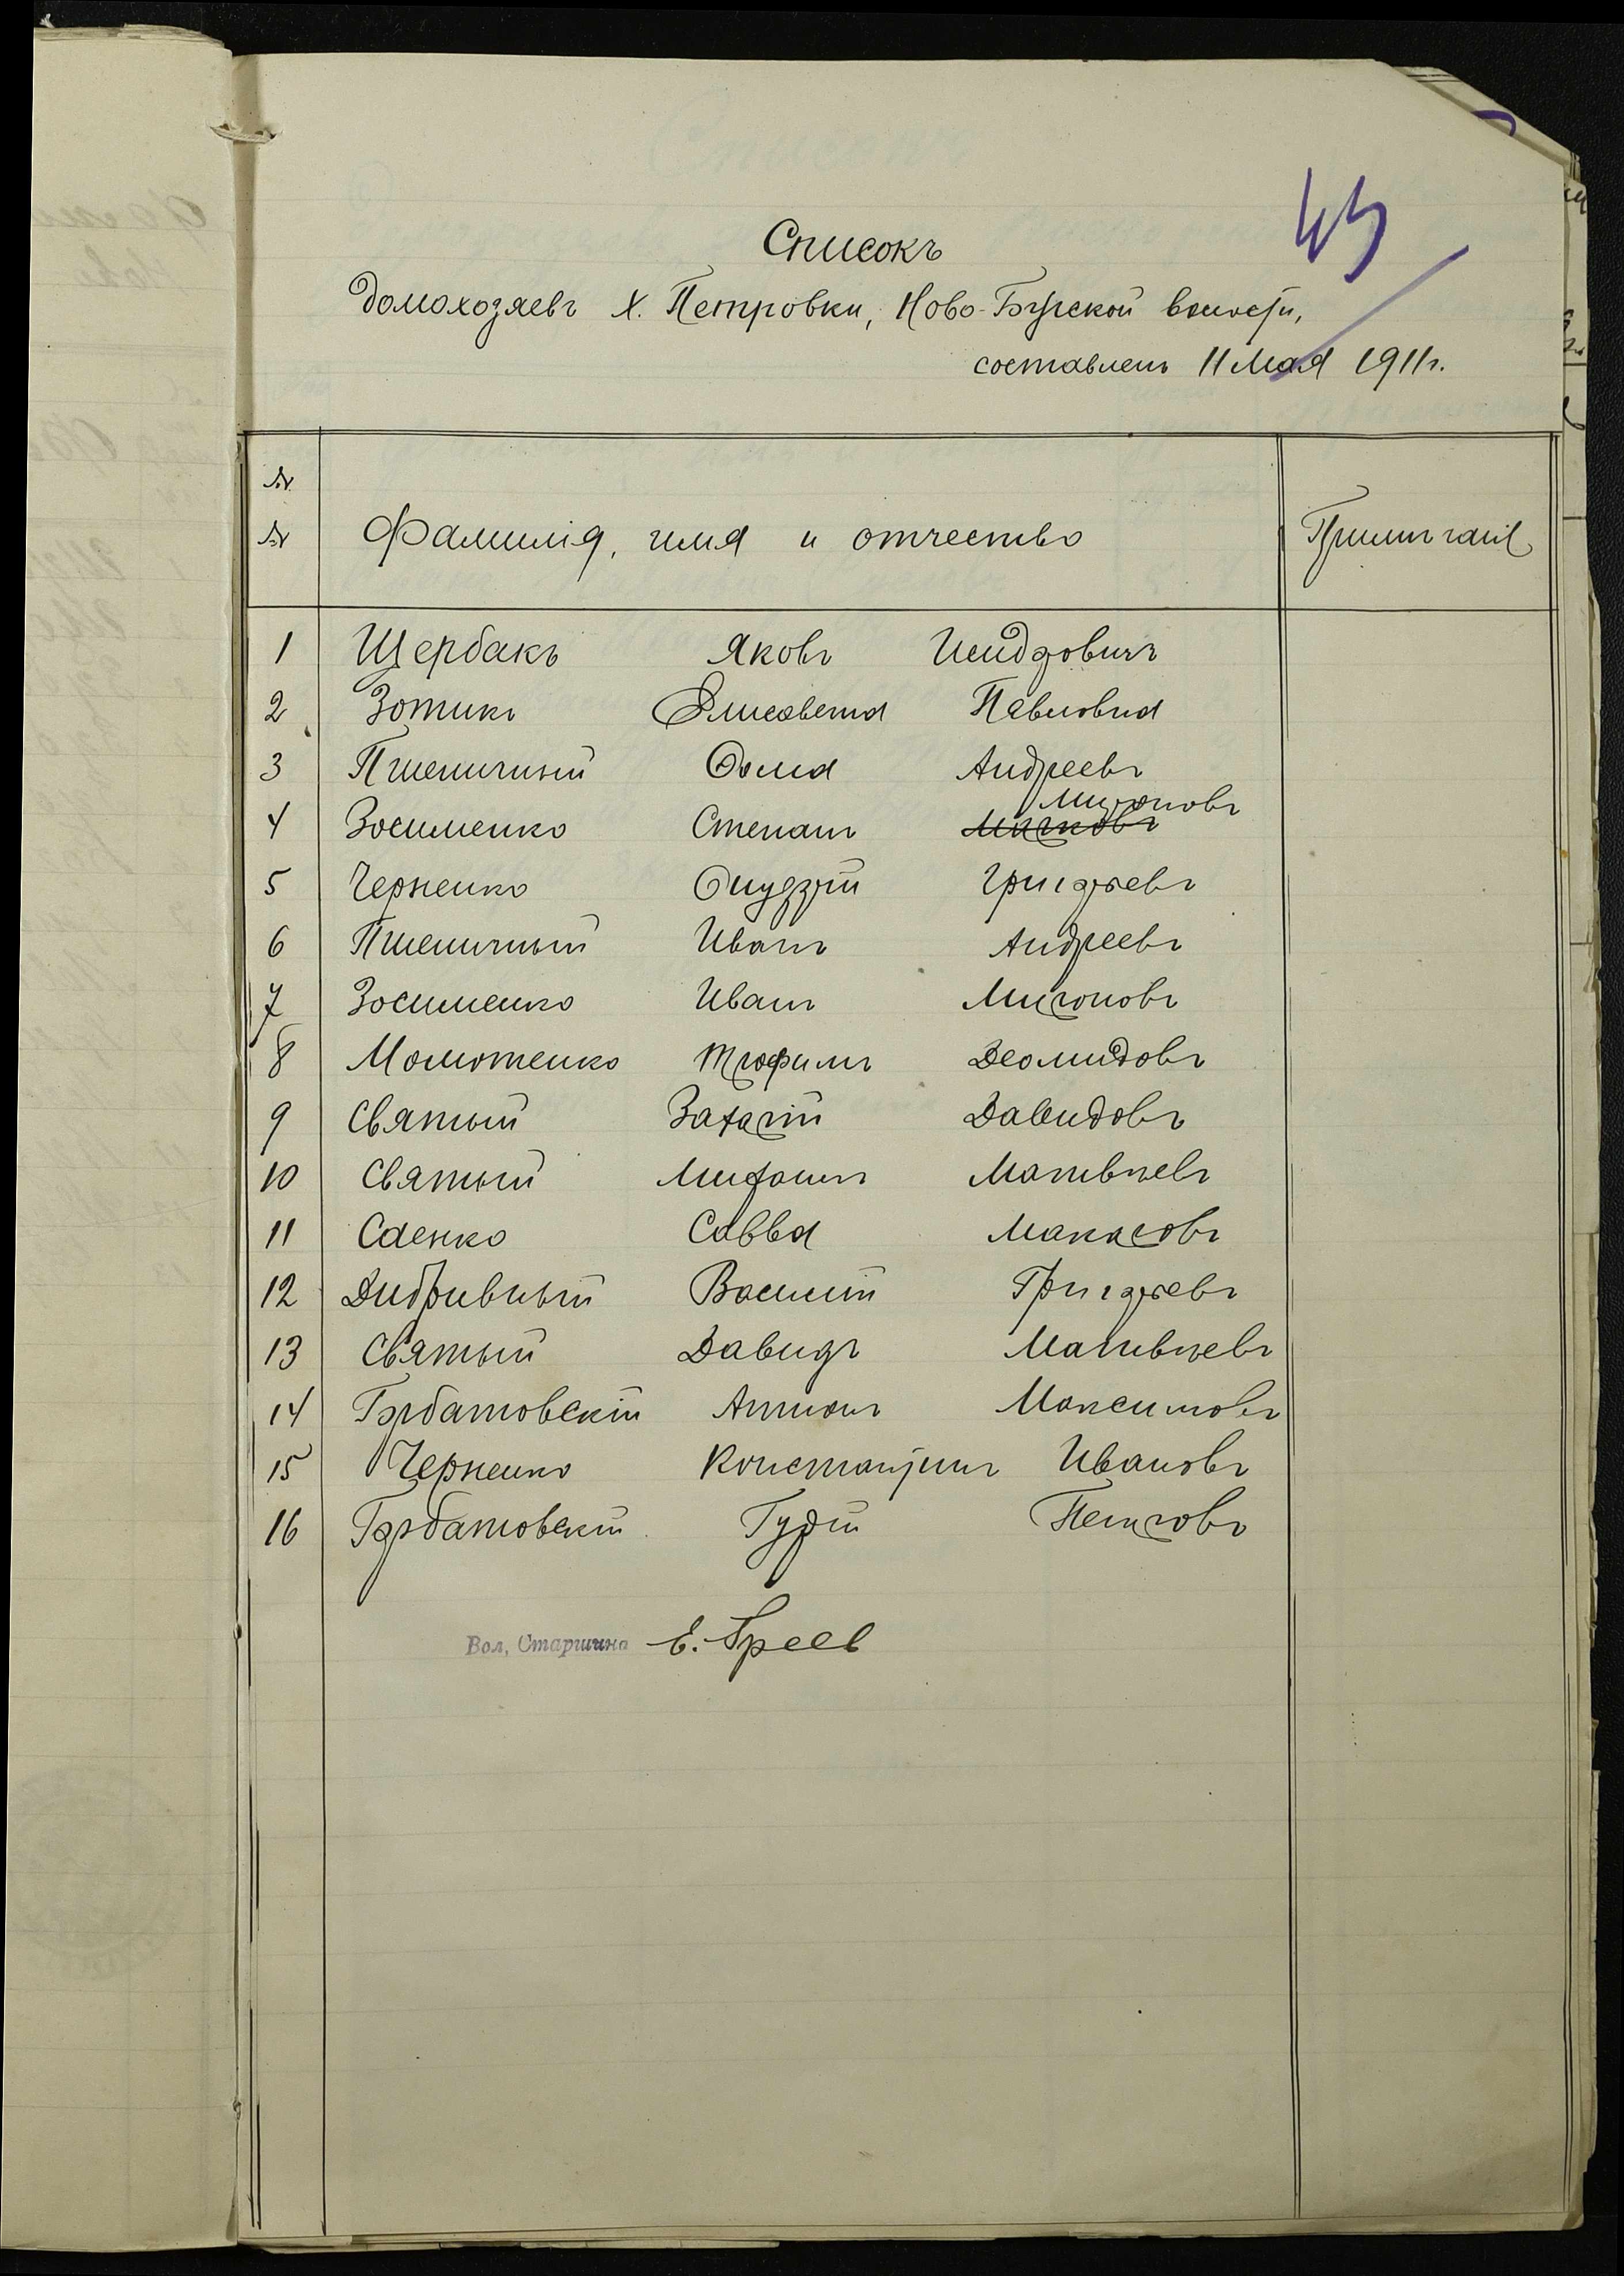 43
Списокъ
домохозяевъ х. Петровки, Ново-Бугской волости,
составленъ 11 Мая 1911 г.
№ № Фамилія, имя и отчество Примѣчанія
1 Щербакъ Яковъ Исидоровичъ
2 Зотикъ Елисавета Павловна
3 Пшеничный Ѳома Андреевъ
Мироновъ
4 Зосименко Степанъ
5 Черненко Онуфрій Григорьевъ
6 Пшеничный Иванъ Андреевъ
7 Зосименко Иванъ Мироновъ
8 Молотенко Трофимъ Деомидовъ
9 Святый Захарій Давидовъ
10 Святый Митрофанъ Матвѣевъ
11 Саенко Савва Макаровъ
12 Дибривный Василій Григорьевъ
13 Святый Давидъ Матвѣевъ
14 Горбатовскій Антонъ Максимовъ
15 Черненко Константинъ Ивановъ
16 Горбатовскій Гурій Петровъ
Вол. Старшина Е.